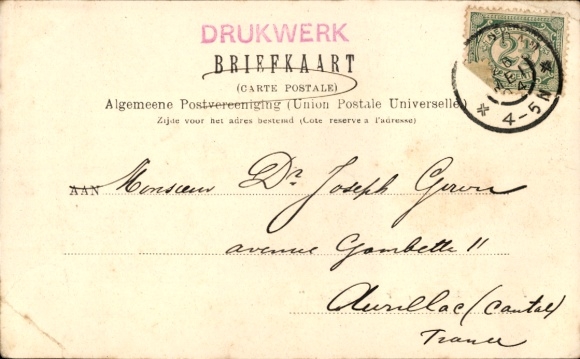 DRUKWERK
BRIEFKAART
(CARTE POSTALE)
Algemeene Postvereeniging (Union Postale Universelle)
Zijde voor het adres bestemd (Côté réservé à l'adresse)
2½
4-5N
AAN Monsieur Dr Joseph
avenue Gambetta 11
Aurillac (Cantal)
France